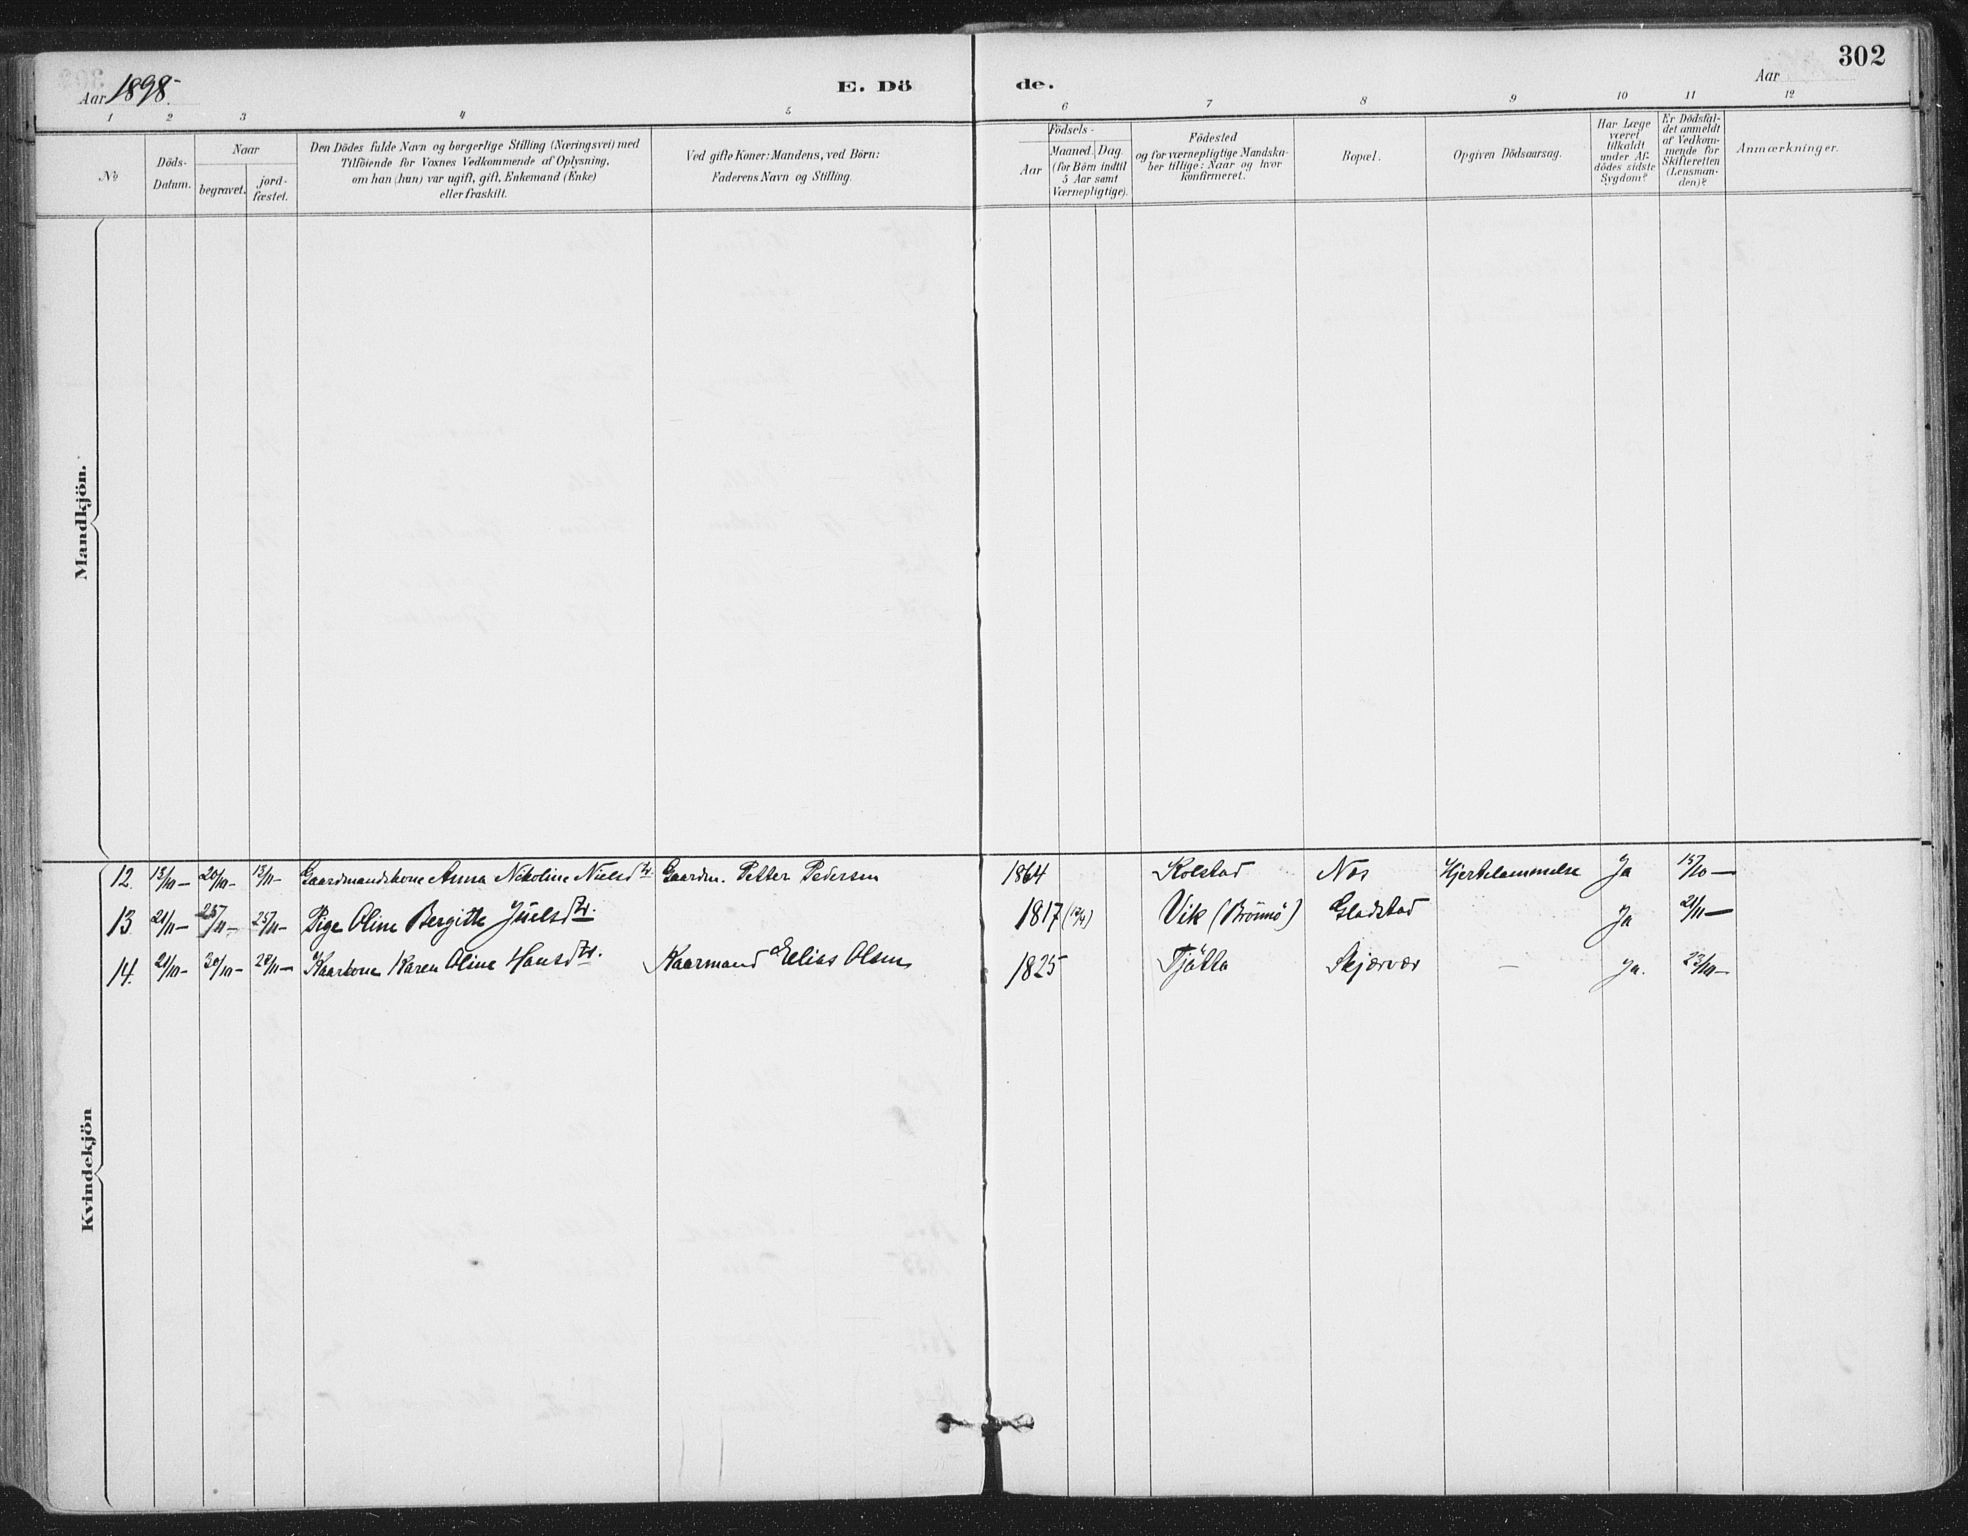 302
Aar 1898.
E. Dö
de.
Aar
1 2 3 4 5 6 7 8 9 10 11 12
No
Döds-
Datum.
Naar
begravet.
jord-
fæstet.
Den Dödes fulde Navn og borgerlige Stilling (Næringsvei) med
Tilföiende for Voxnes Vedkommende af Oplysning,
om han (hun) var ugift, gift, Enkemand (Enke)
eller fraskilt.
Ved gifte Koner: Mandens, ved Börn:
Faderens Navn og Stilling.
Födsels-
Aar
Maaned.
Dag.
(for Börn indtil
5 Aar samt
Værnepligtige).
Födested
og for værnepligtige Mandska-
ber tillige: Naar og hvor
konfirmeret.
Bopæl.
Opgiven Dödsaarsag.
Har Læge
været
tilkaldt
under Af-
dödes sidste
Sygdom?
Er Dödsfal-
det anmeldt
af Vedkom-
mende for
Skifteretten
(Lensman-
den)?
Anmærkninger.
Mandkjön.
12. 13/10- 20/10- 13/11- Gaardmandskone Anna Nikoline Nielsdtr. Gaardm. Petter Pedersen 1864 Kolstad Nos Hjertelammelse Ja 15/10-
13. 21/11- 25/11- 25/11- Pige Oline Bergitte Juelsdtr. 1817 Vik (Brönnö) Gladstad Ja 21/11-
14. 21/10- 30/10- 28/11- Kaarkone Karen Oline Hansdtr. Kaarmand Elias Olsen 1825 Tjötta Skjærvær - ja. 23/10-
Kvindekjön